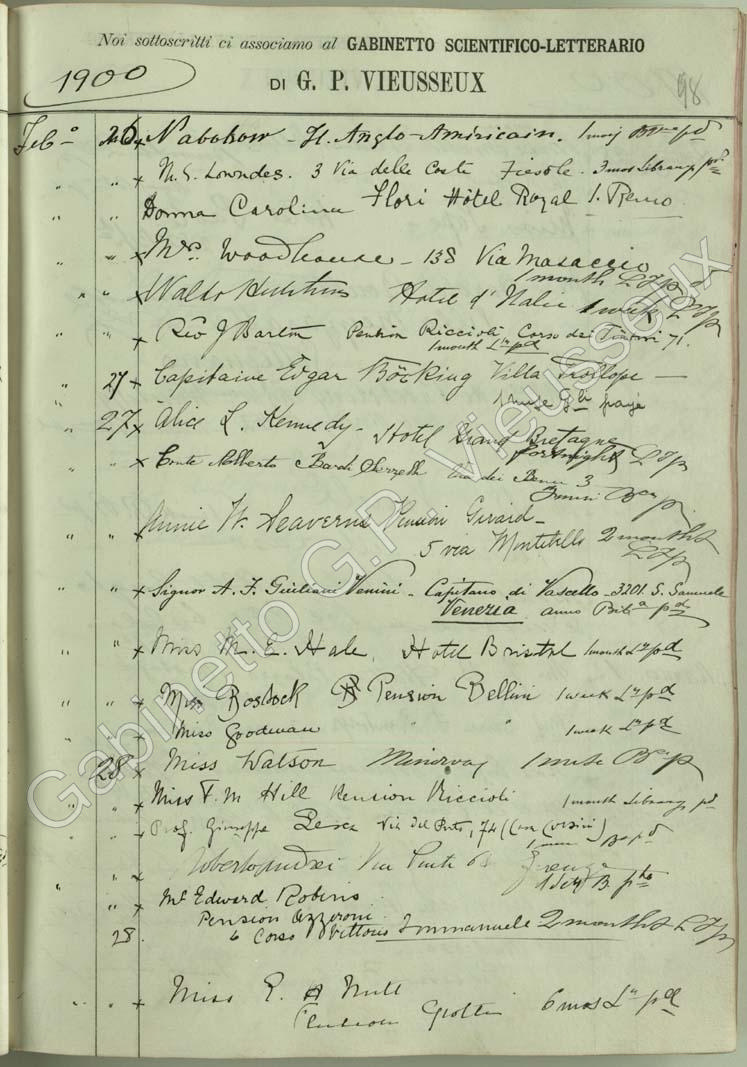 Noi sottoscritti ci associamo al GABINETTO SCIENTIFICO-LETTERARIO
1900
DI G. P. VIEUSSEUX
98
Feb° 26 x Nabokow - H. Anglo-Américain. 1 mois pd
" " x M. S. Lowndes. 3 Via delle Coste Fiesole. 3 mos Library pd
" " Donna Carolina Flori Hôtel Royal S. Remo
" " x Mrs. Woodhouse - 138 Via Masaccio
1 month L & p pd
" " x Waldo Hutchins Hotel d'Italie 1 week L & p
" " x Rev J Barton Pension Riccioli Corso dei Tintori 71.
1 month Lry pd
27 x Capitaine Edgar Böcking Villa Trollope -
1 mese payé
27 x Alice L. Kennedy - Hotel Grand Bretagne
fortnight L & p
" " x Conte Alberto Bardi Serzelli Via dei Benci 3
" " Annie W. Seaverns Pension Girard -
5 via Montebello 2 months
L & p
" " x Signor A. F. Giuliani Venini - Capitano di Vascello - 3201. S. Samuele
Venezia anno pd
" " x Miss M. E. Hale, Hotel Bristol 1 month Lry pd
" " x Miss Bostock Pension Bellini 1 week Lry pd
" " x Miss Goodman " " 1 week Lry pd
28 x Miss Watson Minerva 1 mese p
" " x Miss F. M Hill Pension Riccioli 1 month Library pd
" " x Prof. Giuseppe Pesca Via del Prato, 74 (Casa Corsini)
" " x Via Ponte Firenze
" x Mr Edward Robins
Pension Azzeroni
28. 6 Corso Vittorio Immanuele 2 months L & p
" " x Miss E. A Mull
Pension Grottin 6 mos Lry pd
Gabinetto G.P. Vieusseux